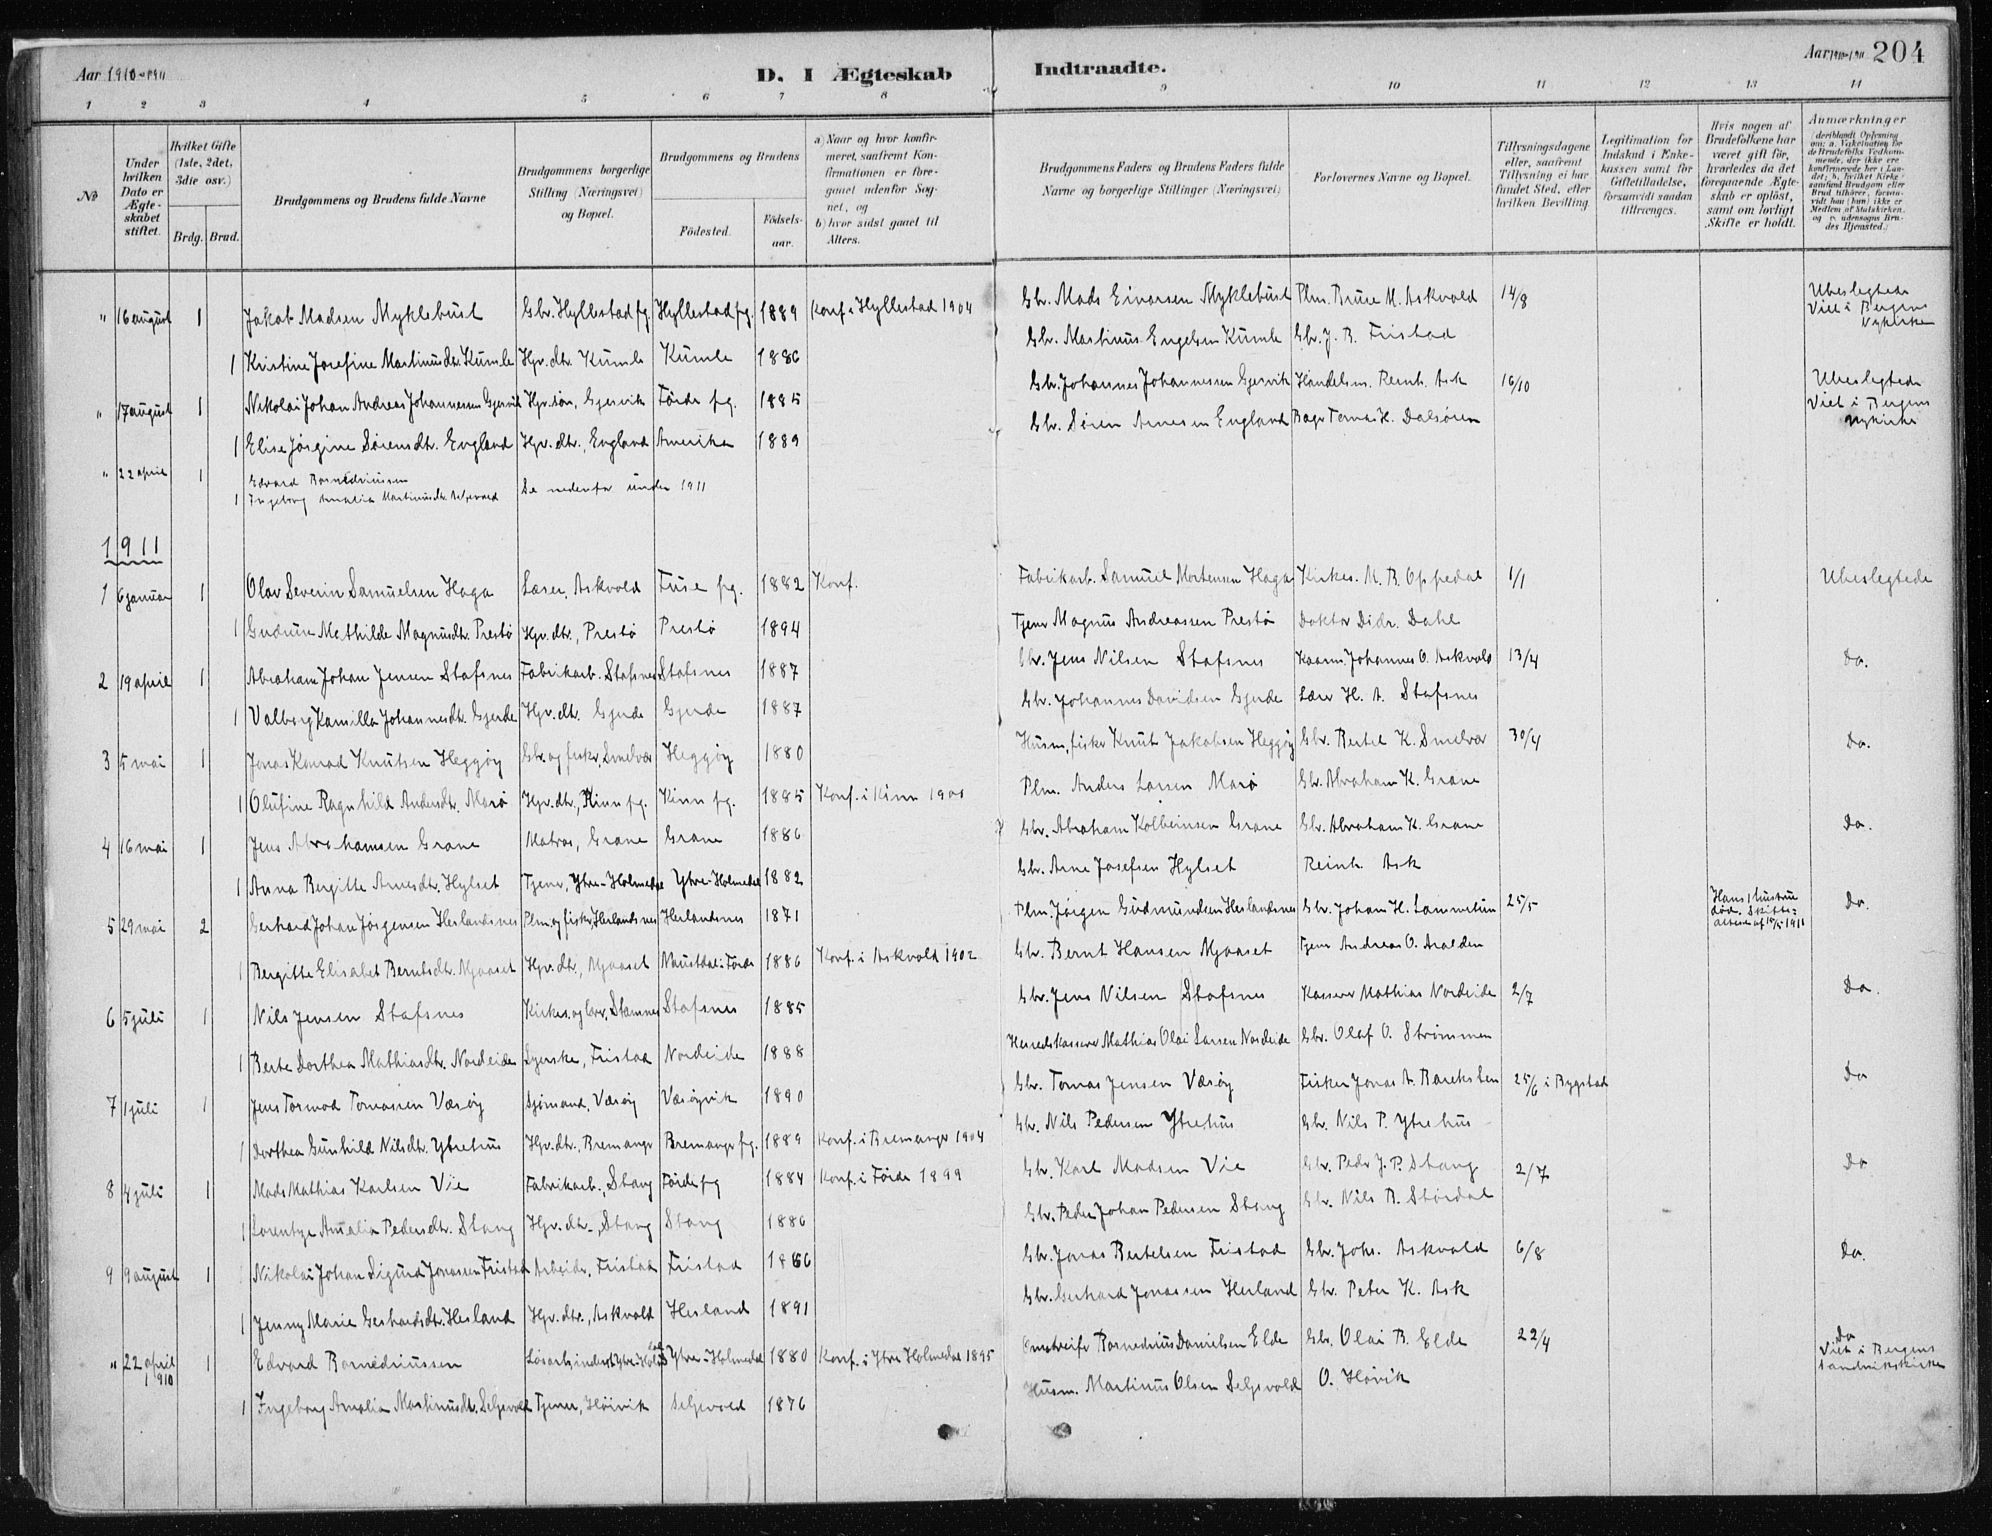 Aar 1910-1911
D. I Ægteskab Indtraadte.
Aar 1910-1911 204
1 2 3 4 5 6 7 8 9 10 11 12 13 14
No
Under hvilken Dato er Ægteskabet stiftet.
Hvilket Gifte (1ste, 2det, 3die osv.)
Brdg. Brud.
Brudgommens og Brudens fulde Navne
Brudgommens borgerlige Stilling (Næringsvei) og Bopæl.
Brudgommens og Brudens
Fødested.
Fødselsaar.
a) Naar og hvor konfirmeret, saafremt Konfirmationen er foregaaet udenfor Sognet, og
b) hvor sidst gaaet til Alters.
Brudgommens Faders og Brudens Faders fulde Navne og borgerlige Stillinger (Næringsvei)
Forlovernes Navne og Bopæl.
Tillysningsdagene eller, saafremt Tillysning ei har fundet Sted, efter hvilken Bevilling.
Legitimation for Indskud i Enkekassen samt for Giftetilladelse, forsaavidt saadan tiltrænges.
Hvis nogen af Brudefolkene har været gift før, hvorledes da det foregaaende Ægteskab er opløst, samt om lovligt Skifte er holdt.
Anmærkninger (deriblandt Oplysning om: a. Vakcination for de Brudefolks Vedkommende, der ikke ere konfirmerede her i Landet; b. hvilket Kirkesamfund Brudgom eller Brud tilhører, forsaavidt han (hun) ikke er Medlem af Statskirken, og c. udensogns Brudes Hjemsted.)
" 16 august 1 Jakob Madsen Myklebust Gbr. Hyllestad pg. Hyllestad pg. 1889 Konf. i Hyllestad 1904 Gbr. Mads Eivarsen Myklebust Plm. Brure M. Askvold 14/8 Ubeslegtede Viet i Bergens Nykirke
1 Kristine Josefine Martinusdtr. Kumle Hgv. dtr. Kumle Kumle 1886 Gbr. Martinus Engelsen Kumle Gbr. J. B. Fristad
" 17 august 1 Nikolai Johan Andreas Johannessen Gjervik Hgv. søn, Gjervik Førde pg. 1885 Gbr. Johannes Johannessen Gjervik Handelsm. Reinh. Ask 16/10 Ubeslegtede Viet i Bergens Nykirke
1 Elise Jørgine Sørensdtr. England Hgv. dtr., England Amerika 1889 Gbr. Søren Arnesen England H. Dalsøren
" 22 april 1 Edvard Rasmedriussen
1 Ingeborg Amalia Martinusdtr. Selsvold Se nedenfor under 1911
1911
1 6 januar 1 Olav Severin Samuelsen Haga Læser, Askvold Fuse pg. 1882 Konf. Fabrikarb. Samuel Mortensen Haga Kirkes. M. B. Oppedal 1/1 Ubeslegtede
1 Gudrun Mathilde Magnusdtr. Prestø Hgv. dtr., Prestø Prestø 1894 Tjener Magnus Andreassen Prestø Doktor Didr. Dahl
2 19 april 1 Abraham Johan Jensen Stafsnes Fabrikarb. Stafsnes Stafsnes 1887 Gbr. Jens Nilsen Stafsnes Johannes O. Askvold 13/4 Do.
1 Valborg Kamilla Johannesdtr. Gjerde Hgv. dtr. Gjerde Gjerde 1887 Gbr. Johannes Davidsen Gjerde Lærer H. A. Stafsnes
3 5 mai 1 Jonas Konrad Knutsen Heggøy Gbr. og fisker, Smelvær Heggøy 1880 Husm., fisker Knut Jakobsen Heggøy Gbr. Bertel K. Smelvær 30/4 Do.
1 Olufine Ragnhild Andersdtr. Marø Hgv. dtr., Kinn pg. Kinn pg. 1885 Konf. i Kinn 1900 Plm. Anders Larsen Marø Gbr. Abraham K. Grane
4 16 mai 1 Jens Abrahamsen Grane Matros, Grane Grane 1886 Gbr. Abraham Kolbeinsen Grane Gbr. Abraham K. Grane Do.
1 Anna Bergitte Arnesdtr. Hylset Tjener, Ytre-Holmedal Ytre-Holmedal 1882 Gbr. Arne Josefsen Hylset Reinh. Ask
5 29 mai 2 Gerhard Johan Jørgensen Herlandsnes Plm. og fisker, Herlandsnes Herlandsnes 1871 Plm. Jørgen Gudmundsen Herlandsnes Gbr. Johan H. Lammetun 25/5 Hans 1 hustru død. Skifteattest af 15/5 1911 Do.
1 Bergitte Elisabet Berntsdtr. Mjaaset Hgv. dtr., Mjaaset Naustdal i Førde 1886 Konf. i Askvold 1902 Gbr. Bernt Hansen Mjaaset Tjener Andreas O. Aralden
6 5 juli 1 Nils Jensen Stafsnes Kirkes. og lærer, Stamnes Stafsnes 1885 Gbr. Jens Nilsen Stafsnes Kasserer Mathias Nordeide 2/7 Do.
1 Berte Dorthea Mathiasdtr. Nordeide Syerske, Fristad Nordeide 1888 Herredskasserer Mathias Olai Larsen Nordeide Gbr. Olaf O. Strømmen
7 1 juli 1 Jens Tormod Tomassen Værøy Sjømand, Værøy Værøyvik 1890 Gbr. Tomas Jensen Værøy Fisker Jonas A. Bareksten 25/6 i Bygstad Do
1 Dorthea Gunhild Nilsdtr. Ytrehus Hgv. dtr., Bremanger Bremanger pg. 1889 Konf. i Bremanger 1904 Gbr. Nils Pedersen Ytrehus Gbr. Nils P. Ytrehus
8 4 juli 1 Mads Mathias Karlsen Vie Fabrikarb., Stang Førde pg 1884 Konf. i Førde 1899 Gbr. Karl Madsen Vie Gbr. Peder J. P. Stang 2/7 Do
1 Lorentze Amalia Pedersdtr. Stang Hgv. dtr., Stang Stang 1886 Gbr. Peder Johan Pedersen Stang Gbr. Nils B. Størdal
9 9 august 1 Nikolai Johan Sigurd Jonassen Fristad Arbeider, Fristad Fristad Gbr. Jonas Bertelsen Fristad Gbr. Johs. Askvold 6/8 Do.
1 Jenny Marie Gerhardsdtr. Herland Hgv. dtr., Askvold Herland 1891 Gbr. Gerhard Jonassen Herland Gbr. Peter K. Ask
" 22 april 1910 1 Edvard Rasmedriussen Løsarb., inderst, Ytre-Holmedal Ytre-Holmedal 1880 Konf. i Ytre Holmedal 1895 Danielsen Elde Gbr. Olai B. Elde 22/4 Do Viet i Bergens Sandvikskirke
1 Ingeborg Amalia Martinusdtr. Selsvold Tjener, Høivik Selsvold 1876 Husm. Martinus Olsen Selsvold O. Høivik